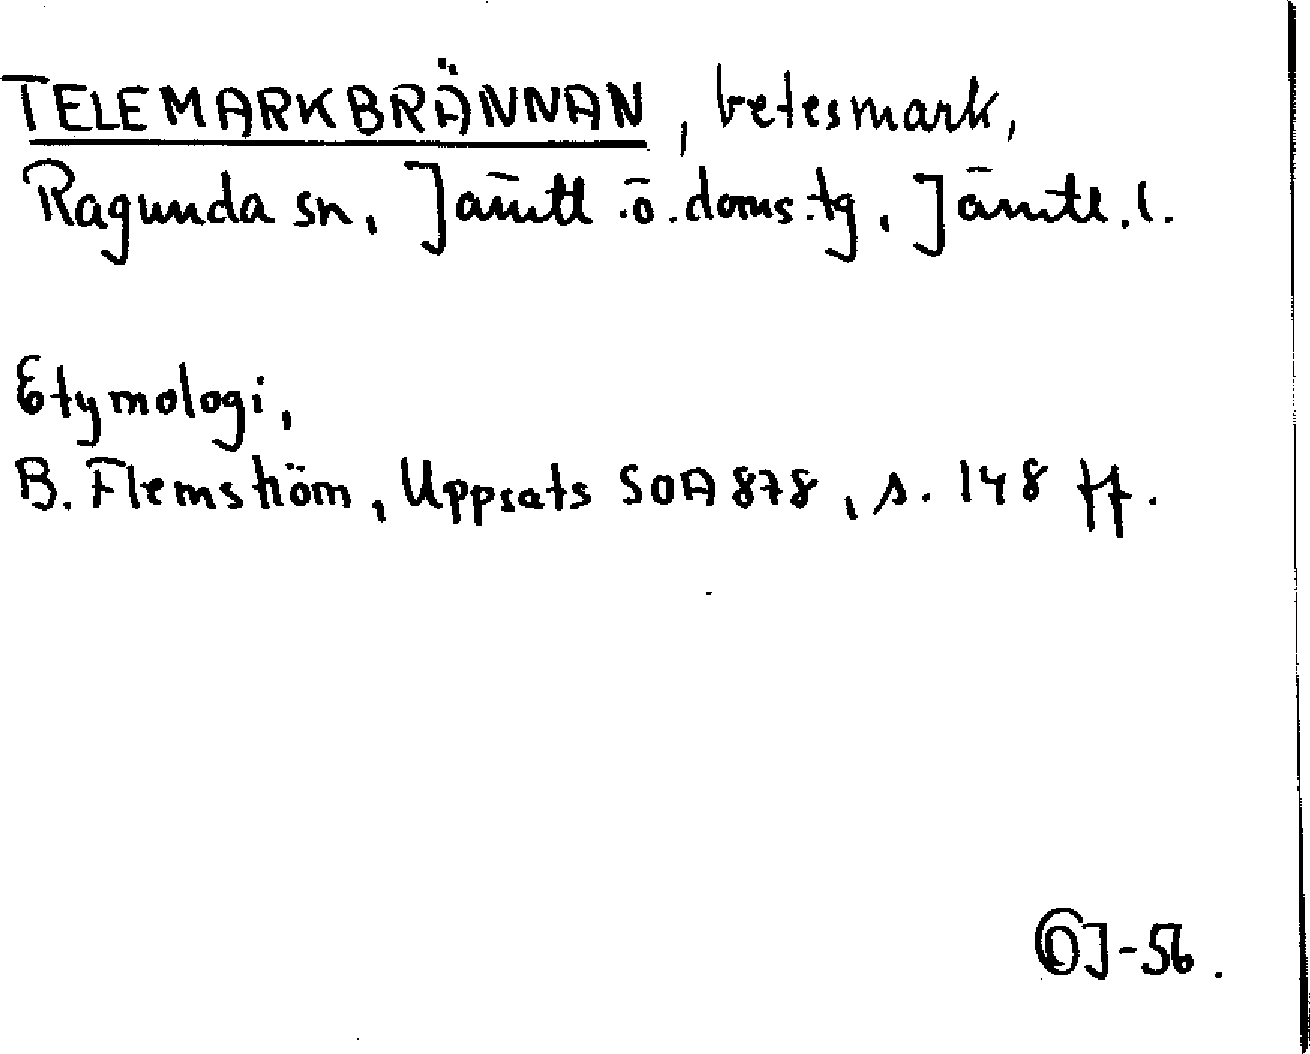 TELEMARKBRÄNNAN, betesmark,
Ragunda sn, Jämtl.ö.doms.tg, Jämtl.l.
Etymologi,
B. Flemström, Uppsats SOA 878, s. 148 ff.
OJ-56.